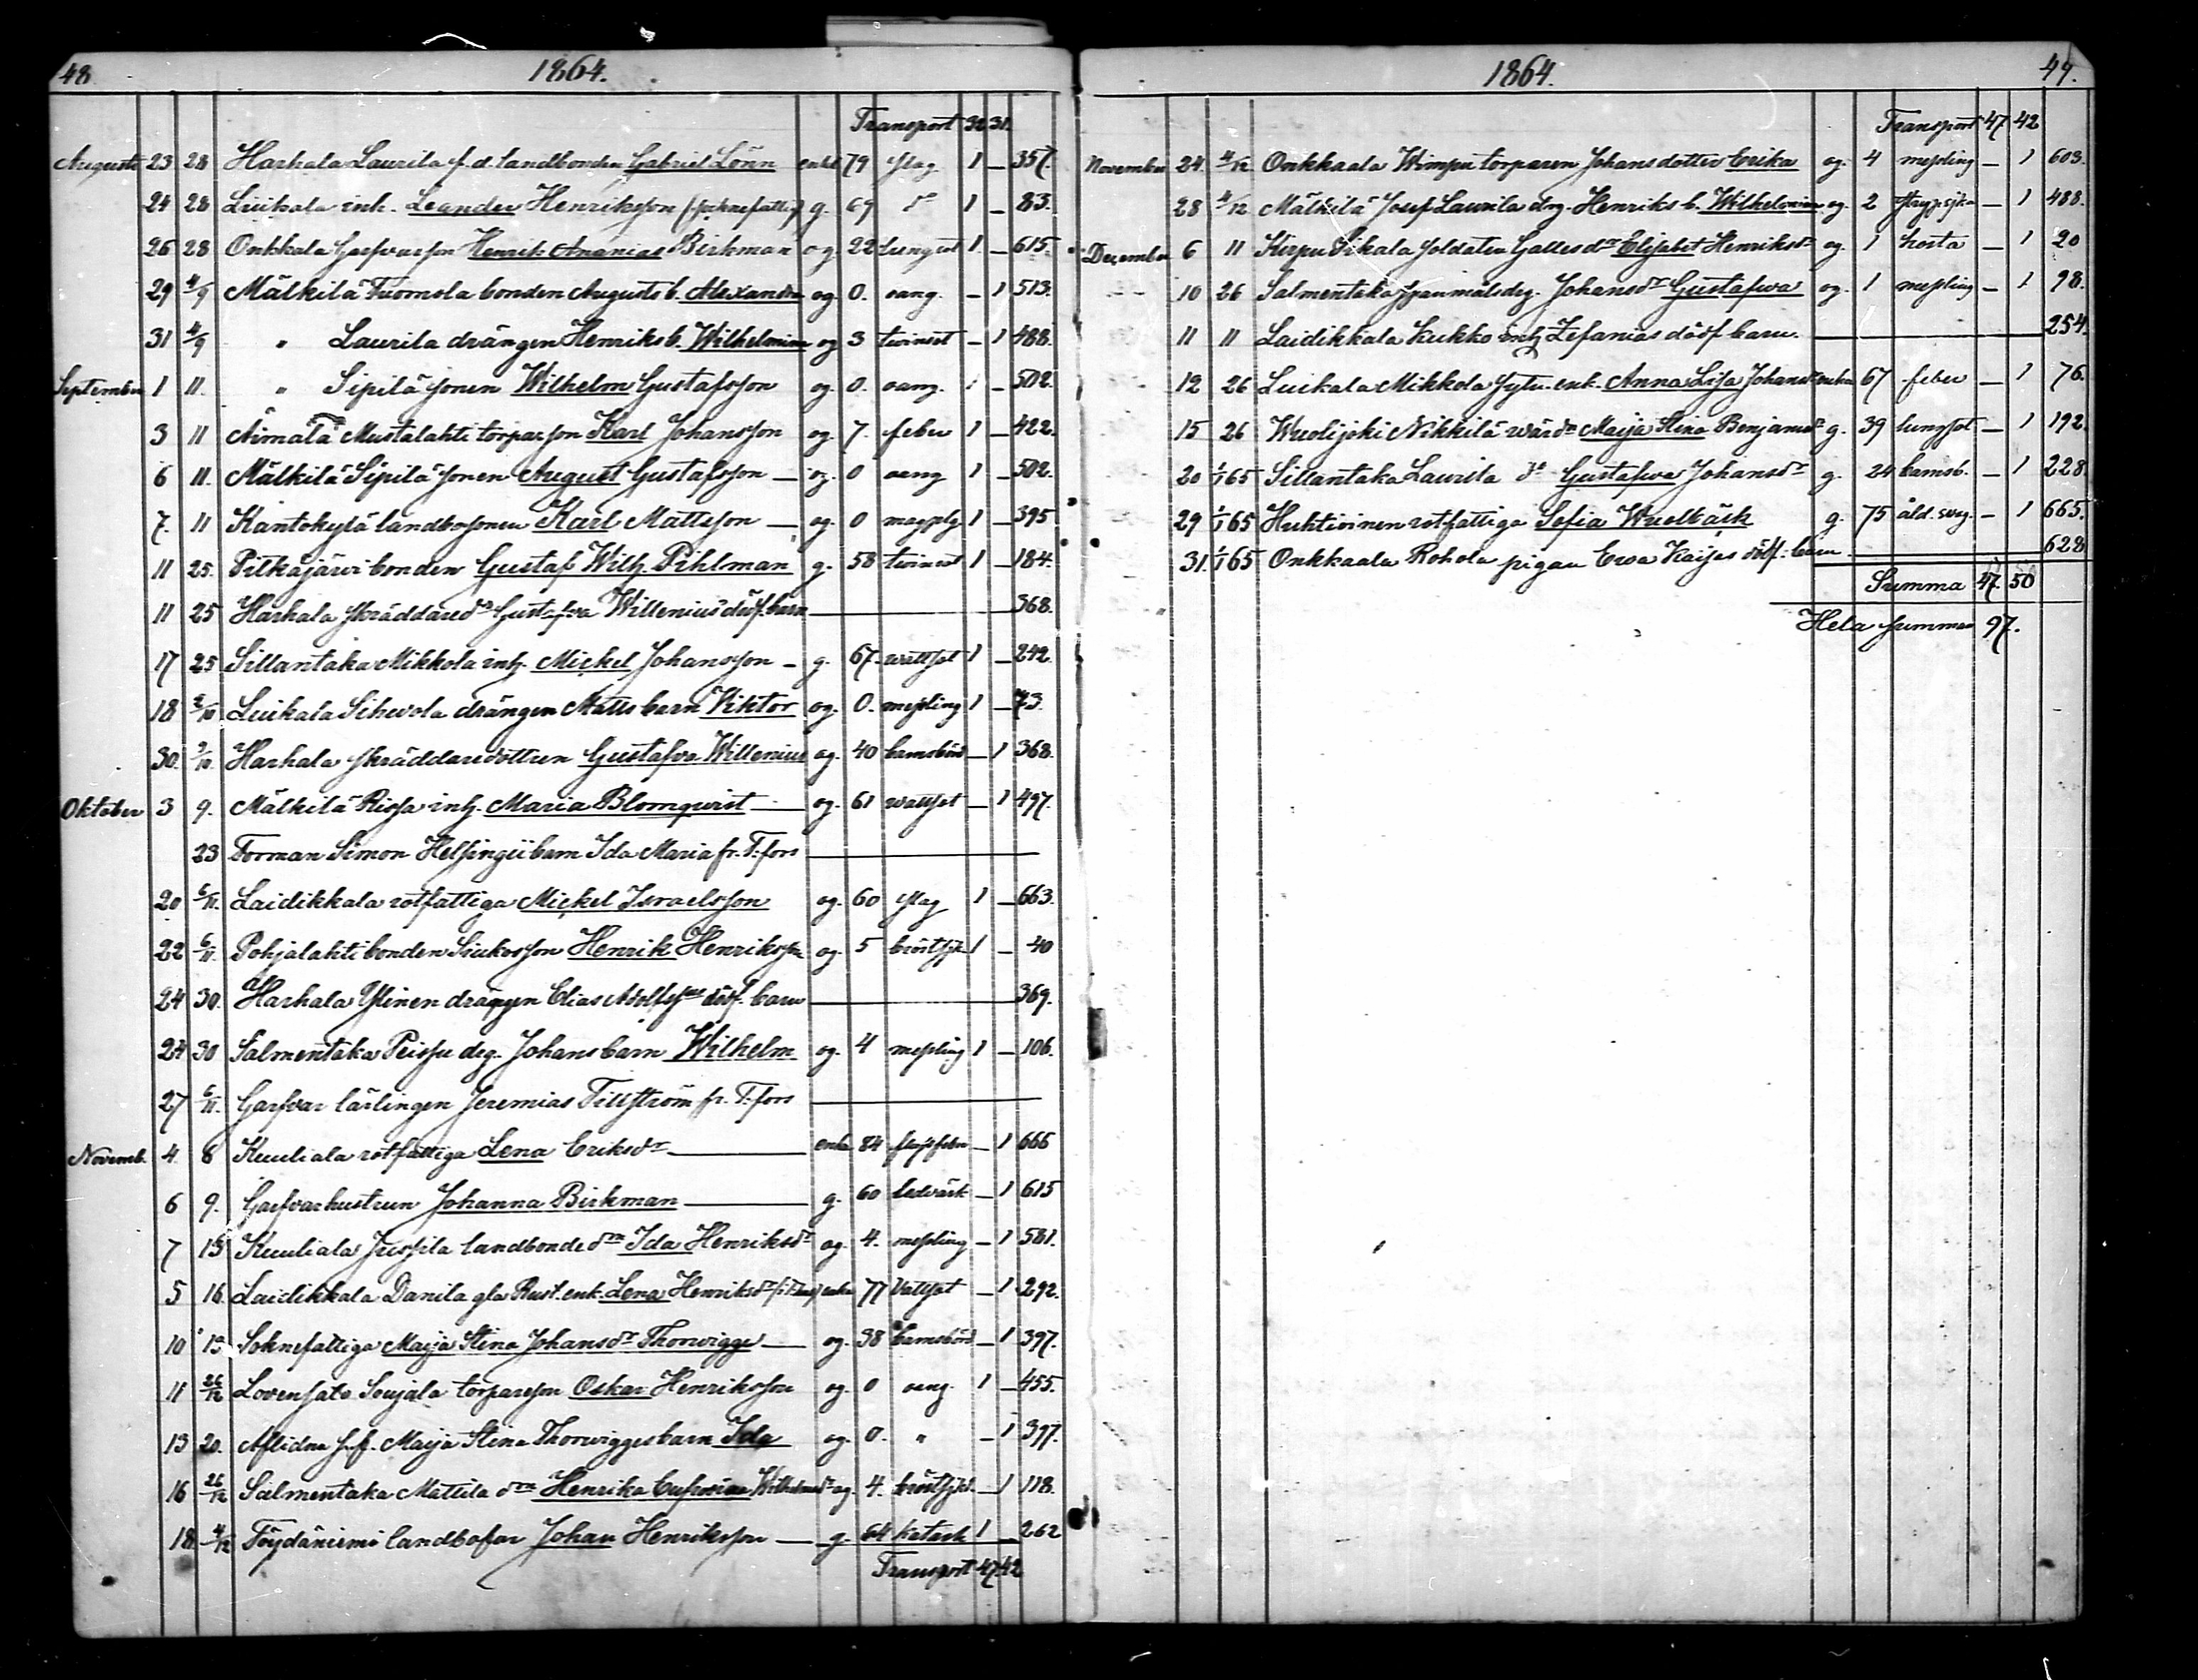 48. 1864.
Transport 32 31.
Augusti 23 28 Harhala Laurila f. d. landbonden Gabriel Lönn enkl. 79 slag 1 — 357.
24 28 Luikala inh. Leander Henriksson (socknefattig) g. 69 d:o 1 — 83.
26 28 Onkkala Garfvarson Henrik Ananias Birkman og. 22 lungsot 1 — 615.
29 4/9 Mälkilä Tuomola bonden Augusts b. Alexandra og. 0. oang. — 1 513.
31 4/9 " Laurila drängen Henriks b. Wilhelmina og 3 twinsot — 1 488.
September 1 11. " Sipilä sonen Wilhelm Gustafsson og. 0. oang. 1 — 502.
3 11 Aimälä Mustalahti torparson Karl Johansson og. 7. feber 1 — 422.
6 11. Mälkilä Sipilä sonen August Gustafsson — og. 0 oang 1 — 502.
7. 11 Kantokylä landbosonen Karl Mattsson — og. 0 magplg 1 — 395
11 25. Pitkäjärvi bonden Gustaf Wilh. Pihlman g. 58 twinsot 1 — 184.
11 25 Harhala skräddared:n Gustafva Willenius' döf. barn — 368.
17 25 Sillantaka Mikkola inh. Mickel Johansson — g. 67. wattsot 1 — 242.
18 2/10 Luikala Sihvola drängen Matts barn Viktor og. 0. messling 1 — 73.
30. 2/10. Harhala skräddaredottren Gustafva Willenius og. 40 barnsbörd — 1 368.
Oktober 3 9. Mälkilä Rissa inh. Maria Blomqvist — og. 61 wattsot — 1 497.
23 Forman Simon Helsingii barn Ida Maria fr. T:fors —
20 6/11. Laidikkala rotfattiga Mickel Israelsson og. 60 slag 1 — 663.
22 6/11. Pohjalahti bonden Siukosson Henrik Henriksson og. 5 bröstsjk 1 — 40
24 30. Harhala Ylinen drängen Elias Adolfssons döf. barn — 369.
24 30 Salmentaka Peissu drg. Johans barn Wilhelm og. 4 messling 1 — 106.
27 6/11. Garfvar lärlingen Jeremias Tillström fr. T:fors —
Novemb. 4. 8 Kuuliala rotfattiga Lena Eriksd:r — enka 84 — 1 666
6 9. Garfvarhustrun Johanna Birkman — g. 60 ledvärk — 1 615
7 13 Kuuliala Jussila landbonded:ren Ida Henriksd:r og. 4. messling — 1 581.
5 16. Laidikkala Danila gla Rust. enk. Lena Henriksd:r enka 77 Vattsot — 1 292.
10 13 Soknefattiga Maija Stina Johansd:r Thorvigge — og. 38 barnsbörd — 1 397.
11 26/12 Lovensato Soujala torparson Oskar Henriksson og. 0 oang. 1 — 455.
13 20. Aflidna s.f. Maija Stina Thorvigges barn Ida og. 0. " — 1 397.
16 26/12 Salmentaka Mattila d:ren Henrika Eufrosina Wilhelmsd:r og. 4. bröstsjkd. — 1 118.
18 4/12 Töydäniemi landbofar Johan Henriksson — g. 64 katarh 1 — 262
Transport 47. 42
1864. 49.
Transport 47 42
November 24 4/12 Onkkaala Wimpu torparen Johans dotter Erika og. 4 messling — 1 603.
28 4/12 Mälkilä Josef Laurila drg. Henriks b. Wilhelmina og. 2 — 1 488.
December 6 11 Kirpu Pikala soldaten Galles d:r Elisabet Henriksd:r og. 1 hosta — 1 20
10 26 Salmentaka spanmålsdrg. Johans d:r Gustafwa og. 1 messling — 1 98.
11 11 Laidikkala Kukko inh Zefanias dödf barn. — 254.
12 26 Luikala Mikkola Sytn. enk. Anna Lisa Johansd:r enka 67 feber — 1 76.
15 26 Wuolijoki Nikkilä wärdn Maija Stina Benjamsd:r g. 39 lungsot — 1 192.
20 1/1 65 Sillantaka Laurila d:o Gustafwa Johansd:r g. 24 barnsb. — 1 228
29 1/1 65 Huhtivinen rotfattiga Sofia Wuolbäck g. 75 åld. svag. — 1 665.
31. 1/1 65 Onkkaala Rohola pigan Ewa Kaijas dödf. barn — 628
Summa 47. 50
Hela summan 97.